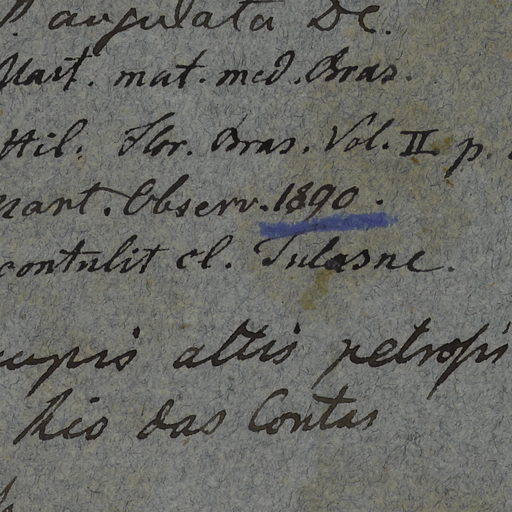 P. angulata DC.
Mart. mat. med. Bras.
Hil. Flor. Bras. Vol. II p.
Mart. Observ. 1890.
contulit cl. Tulasne.
rupis altis petrosis
Rio das Contas